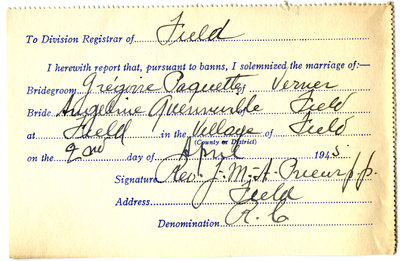 To Division Registrar of Field
I herewith report that, pursuant to banns, I solemnized the marriage of:—
Bridegroom Grégoire Paquette of Verner
Bride Angeline Quenneville of Field
at Field in the Village of Field
(County or District)
on the 2nd day of April 1945.
Signature Rev. J.-M.-A. Prieur p.p.
Address Field
Denomination R. C